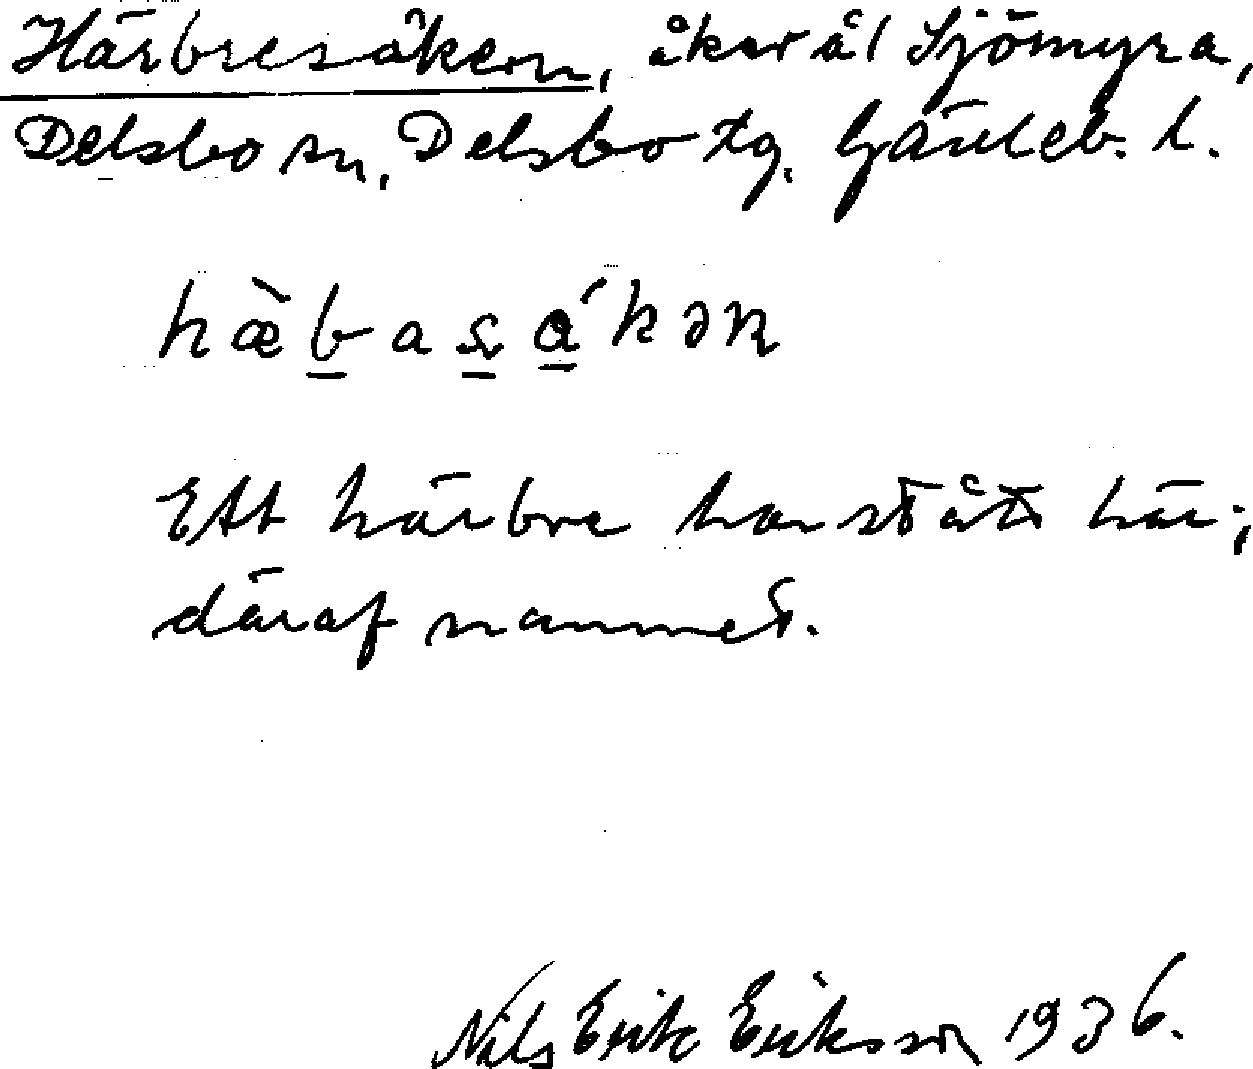 Härbresåkern, åker å Sjömyra,
Delsbo sn, Delsbo tg. Gävleb. l.
hæ̀basǻkən
Ett härbre har stått här;
däraf namnet.
Nils Erik Eriksson 1936.